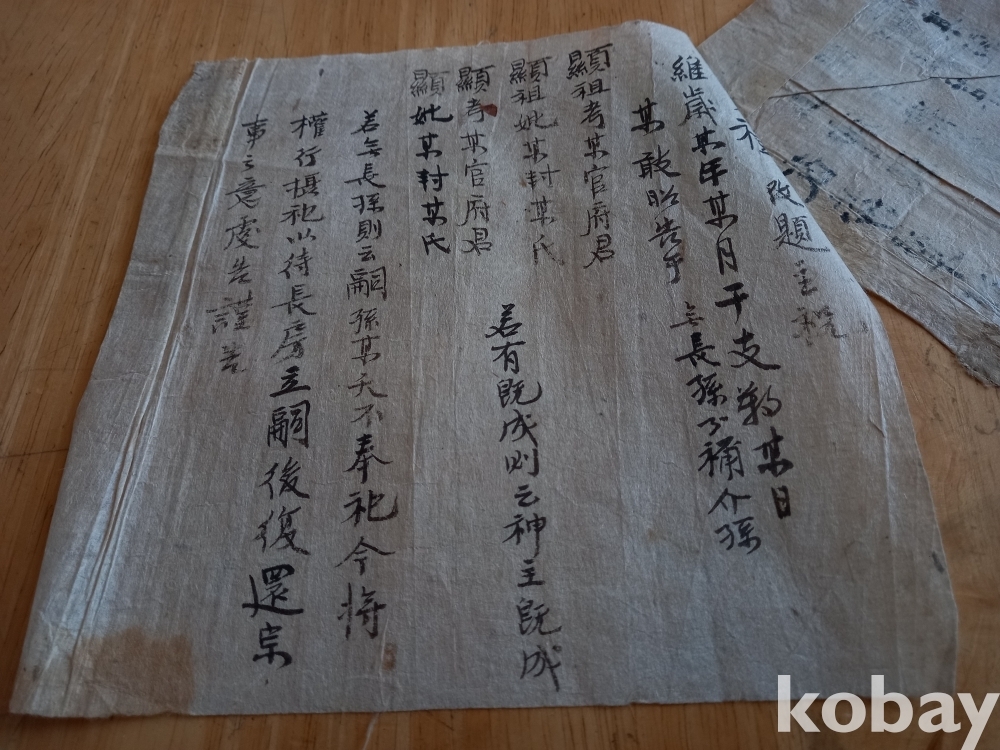 改題主祝
維歲某年某月干支朔某日
無長孫不稱介孫
某敢昭告于
顯祖考某官府君
顯祖妣某封某氏
顯考某官府君
顯妣某封某氏
若有既成則云神主既成
若無長孫則云嗣孫某夭不奉祀今將
權行攝祀以待長房立嗣後復還宗
事之意虔告謹告
kobay